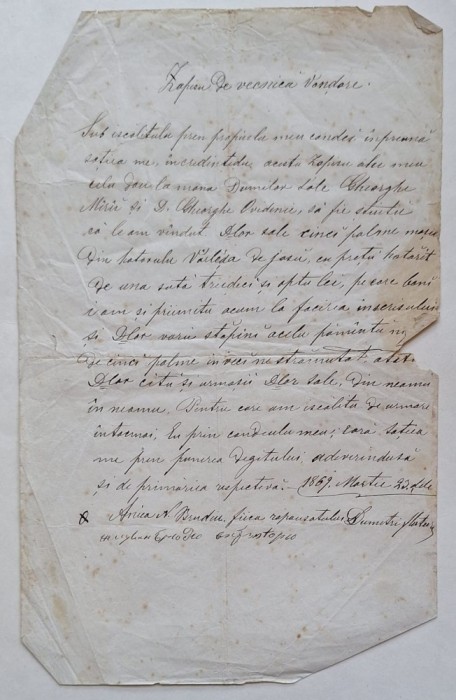 Zapisu De vecinica Vândare.
Sub iscalitulu pren propriulu meu condei înpreună
soția me, încredințăm acestu Zapisu alu meu
celu dau la mâna Dumilor sale Gheorghe
și D. Gheorghe să fie știutu
că le am vîndut Dlor sale cinci palme
Din hotarulu De josu, cu prețu hotărît
De una sută treideci și optu lei, pe care bani
i am și priimitu acum la facerea inscrisului
și Dlor voru stăpîni acestu pămîntu
De cinci palme în veci nestramutat
Dlor cîtu și urmașii Dlor sale, Din neamu
în neamu. Pentru care am iscalitu De urmare
întocmai, Eu prin condeiulu meu, eară soția
me pren punerea Degitului, adeverindusă
și de primăria respectivă. 1869. Martie
Anica A. fiica raposatului Dumitru